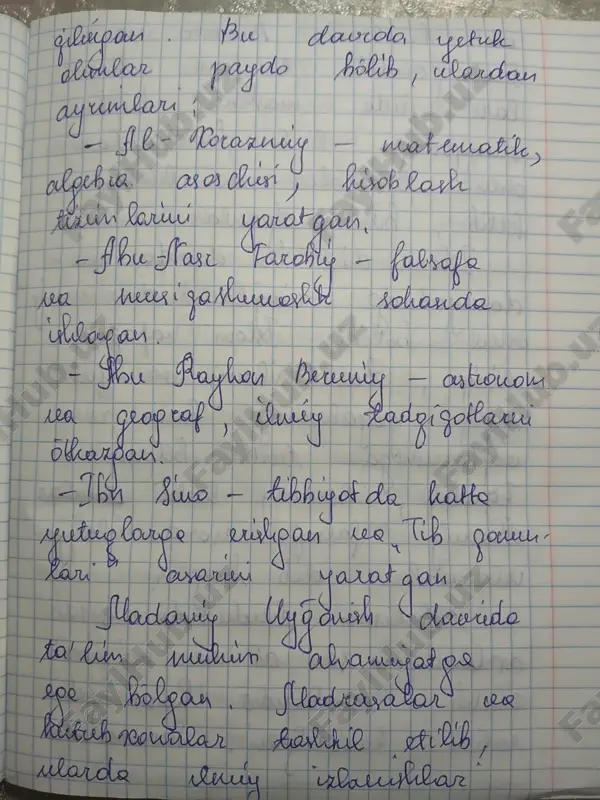 qilingan. Bu davrda yetuk
olimlar paydo bòlib, ulardan
ayrimlari:
- Al-Xorazmiy – matematik,
algebra asoschisi, hisoblash
tizimlarini yaratgan.
- Abu Nasr Farobiy – falsafa
va musiqashunoslik sohasida
ishlagan.
- Abu Rayhon Beruniy – astronom
va geograf, ilmiy tadqiqotlarni
ötkazgan.
- Ibn Sino – tibbiyotda katta
yutuqlarga erishgan va „Tib qonun-
lari" asarini yaratgan
Madaniy Uyg'onish davrida
ta'lim muhim ahamiyatga
ega bòlgan. Madrasalar va
kutubxonalar tashkil etilib,
ularda ilmiy izlanishlar
FaylHub.uz